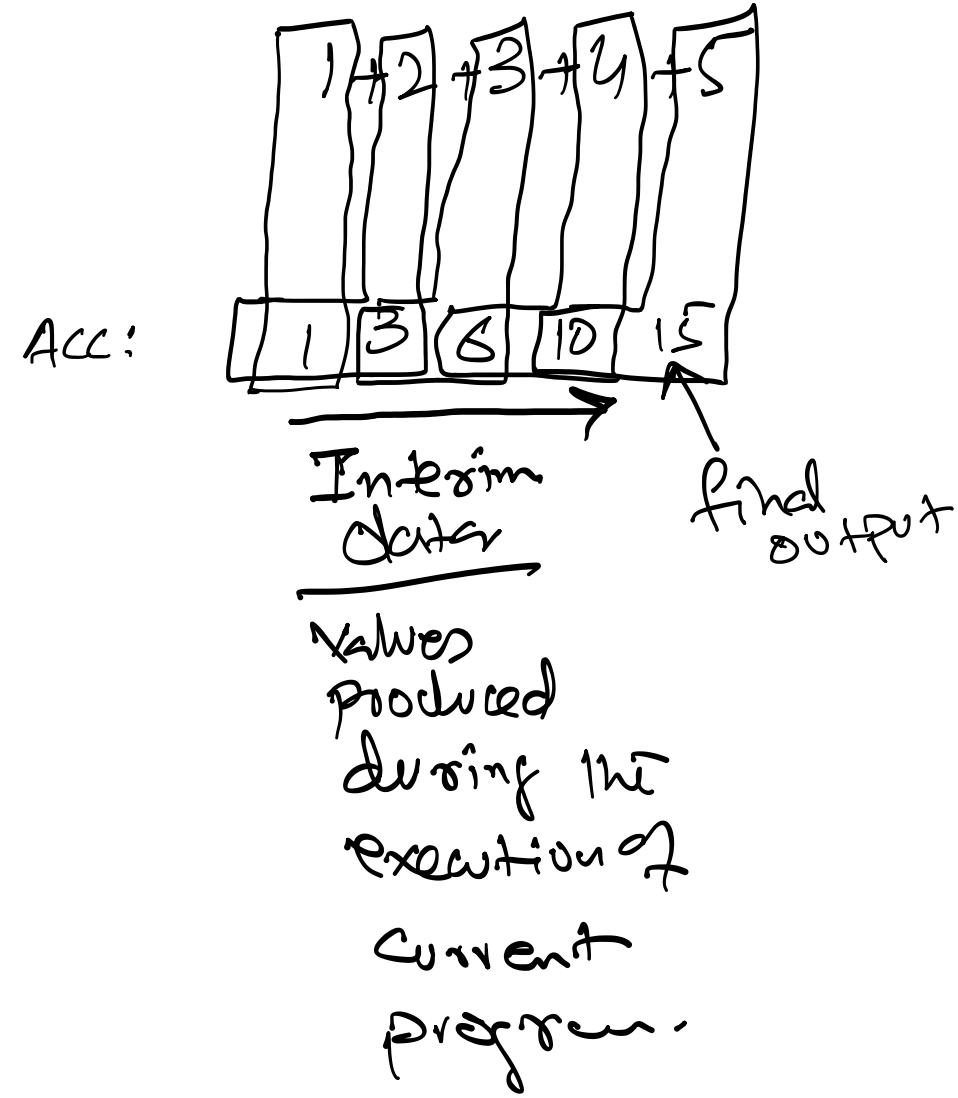 1 + 2 + 3 + 4 + 5
Acc: 1 3 6 10 15
Interim
data
final
output
values
produced
during the
execution of
current
program.